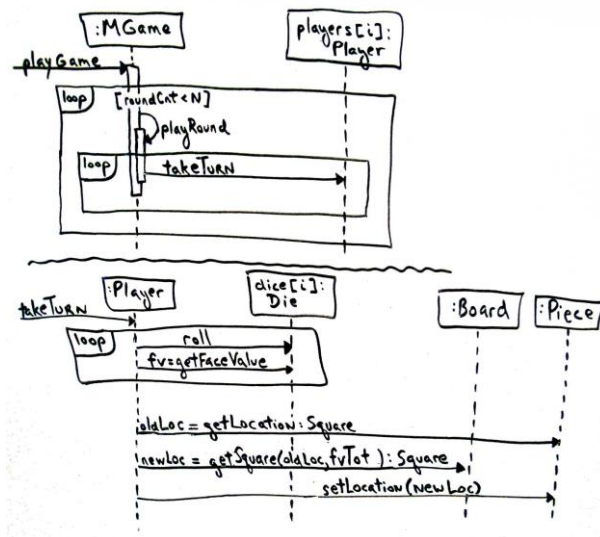 :MGame
players[i]:
Player
playGame
loop
[roundCnt<N]
playRound
loop
takeTURN
:Player
dice[i]:
Die
:Board
:Piece
takeTURN
loop
roll
fv=getFaceValue
oldLoc = getLocation: Square
newLoc = getSquare(oldLoc, fvTot): Square
setLocation(newLoc)